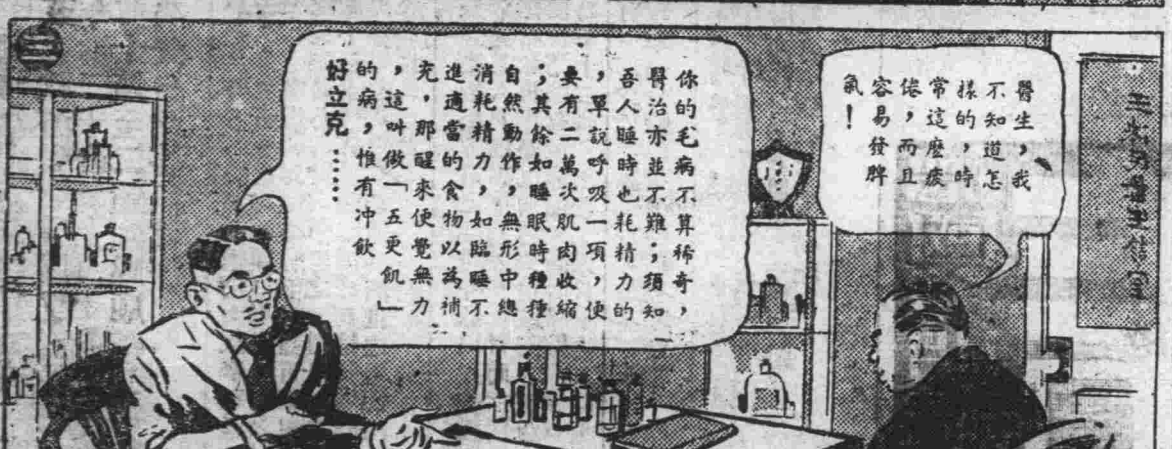 三
醫生，我
不知道怎
樣的，時
常這麼疲
倦，而且
容易發脾
氣！
你的毛病不算稀奇，
醫治亦並不難；須知
吾人睡時也耗精力的
，單說呼吸一項，便
要有二萬次肌肉收縮
；其餘如睡眠時種種
自然動作，無形中總
消耗精力，如臨睡不
進適當的食物以為補
充，那醒來便覺無力
，這叫做「五更飢」
的病，惟有冲飲
好立克……